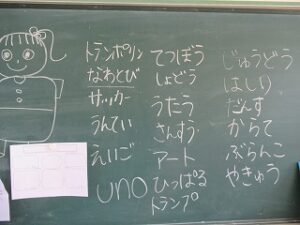 トランポリン
なわとび
サッカー
うんてい
えいご
UNO
てつぼう
しょどう
うたう
さんすう
アート
ひっぱる
トランプ
じゅうどう
はしり
だんす
からて
ぶらんこ
やきゅう